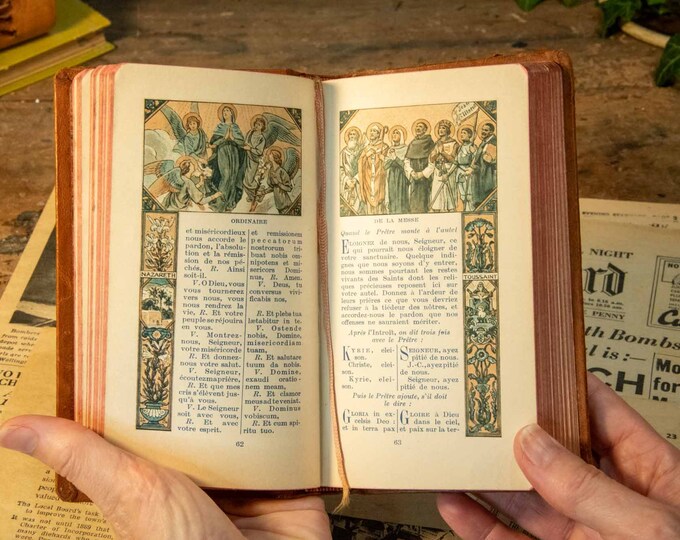 ORDINAIRE
NAZARETH
et miséricordieux
nous accorde le
pardon, l'absolu-
tion et la rémis-
sion de nos pé-
chés, R. Ainsi
soit-il.
V. O Dieu, vous
vous tournerez
vers nous, vous
nous rendrez la
vie, R. Et votre
peuple se réjouira
en vous.
V. Montrez-
nous, Seigneur,
votre miséricorde
R. Et donnez-
nous votre salut.
V. Seigneur,
écoutez ma prière,
R. Et que mes
cris s'élèvent jus-
qu'à vous.
V. Le Seigneur
soit avec vous,
R. Et avec
votre esprit.
et remissionem
peccatorum
nostrorum tri-
buat nobis om-
nipotens et mi-
sericors Domi-
nus, R. Amen.
V. Deus, tu
conversus vivi-
ficabis nos,
R. Et plebs tua
lætabitur in te.
V. Ostende
nobis, Domine,
misericordiam
tuam,
R. Et salutare
tuum da nobis.
V. Domine,
exaudi oratio-
nem meam,
R. Et clamor
meus ad te veniat.
V. Dominus
vobiscum,
R. Et cum spi-
ritu tuo.
62
DE LA MESSE
TOUSSAINT
Quand le Prêtre monte à l'autel
ELOIGNEZ de nous, Seigneur, ce
qui pourrait nous éloigner de
votre sanctuaire. Quelque indi-
gnes que nous soyons d'y entrer,
nous sommes pourtant les restes
vivants des Saints dont les reli-
ques précieuses reposent ici sur
votre autel. Donnez à l'ardeur de
leurs prières ce que vous devriez
refuser à la tiédeur des nôtres, et
accordez-nous le pardon que nos
offenses ne sauraient mériter.
Après l'Introït, on dit trois fois
avec le Prêtre :
KYRIE, elei-
son.
Christe, elei-
son.
Kyrie, elei-
son.
SEIGNEUR, ayez
pitié de nous.
J.-C., ayez pitié
de nous.
Seigneur, ayez
pitié de nous.
Puis le Prêtre ajoute, s'il doit
le dire :
GLORIA in ex-
celsis Deo :
et in terra pax
GLOIRE à Dieu
dans le ciel,
et paix sur la ter-
63
NIGHT
PENNY
th Bombs
is :
Mo
for